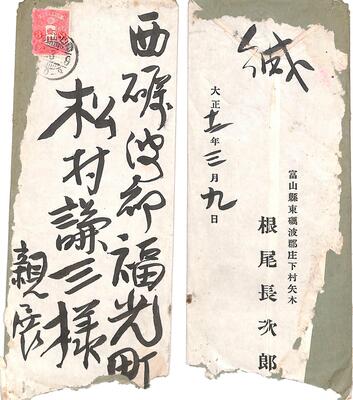 西礪波郡福光町
松村謙三様
親展
緘
大正十一年三月九日
富山縣東礪波郡庄下村矢木
根尾長次郎